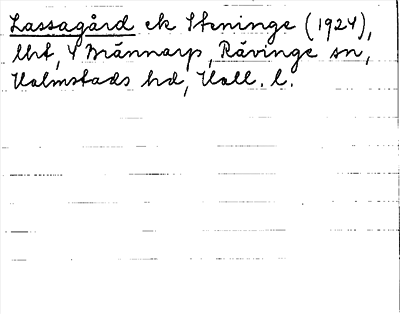 Lassagård ek Steninge (1924),
lht, 4 Männarp, Rävinge sn,
Halmstads hd, Hall. l.